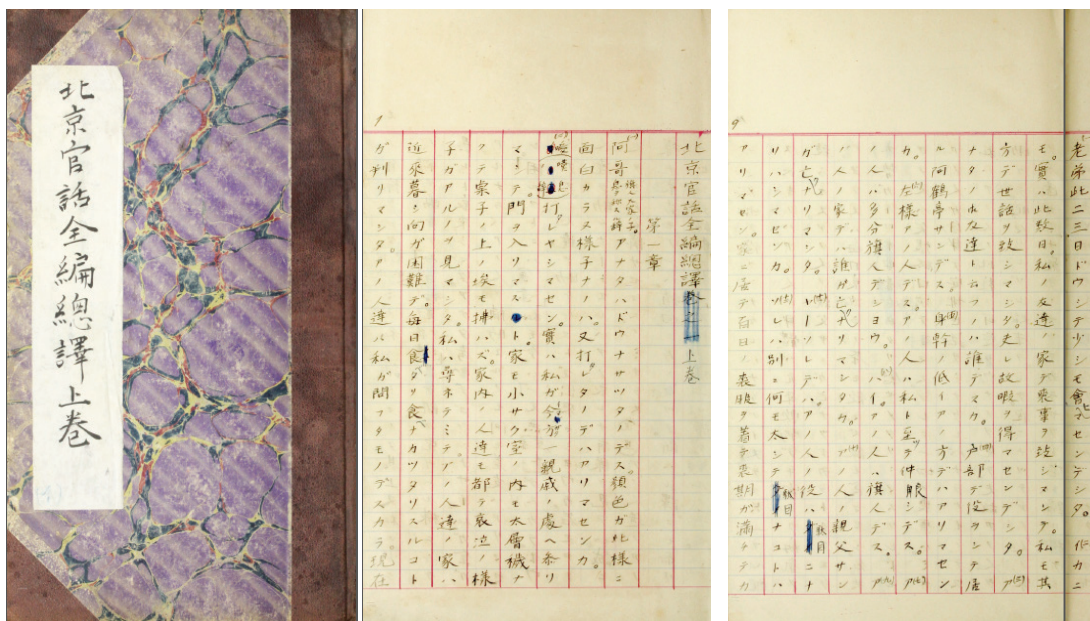 北京官話全編總譯上巻
1
北京官話全編總譯巻之一上巻
第一章
阿哥アナタハドウナサツタノデス。顔色ガ此様ニ
面白カラヌ様子ナノハ。又打レタノデハアリマセンカ。
打レヤシマセン。實ハ私ガ今方親戚ノ處ヘ参リ
マシテ門ヲ入リマスト家モ小サク室ノ内モ太層穢ナ
クテ案子ノ上ノ埃モ拂ハズ。家内ノ人達モ都テ哀泣ノ様
子ガアルノヲ見マシタ。私ハ尋ネテミテアノ人達ノ家ハ
近來暮シ向ガ困難デ。毎日食ダリ食ナカツタリスルコト
ガ判リマシタ。アノ人達ハ私ガ問フタモノデスカラ現在
9
老弟此二三日ドウシテ少シモ會ヒマセンデシタ。
モ。實ハ此数日。私ノ友達ノ家デ喪事ヲ弁ジマシタ。私モ其
方デ世話ヲ致シマシタ。夫レ故暇ヲ得マセンデシタ。ア
ナタノ御友達ト云フノハ誰デスカ。戸部デ役ヲシテ居
ル阿鶴亭サンデス。身幹ノ低イアノ方デハアリマセン
カ。左様アノ人デス。アノ人ハ私ト至ツテ仲眤シデス。ア
ノ人ハ多分旗人デシヨウ。ハイ。アノ人ハ旗人デス。ア
ノ人ノ家デハ誰ガ亡ナリマシタカ。アノ人ノ親父サン
ガ亡ナリマシタ。ソレデハアノ人ノ役ハ
リハシマセンカ。ソレハ別ニ何モ太シテ ナコトハ
アリマセン。家ニ居テ百日ノ喪服ヲ着テ喪期ガ満テテカ